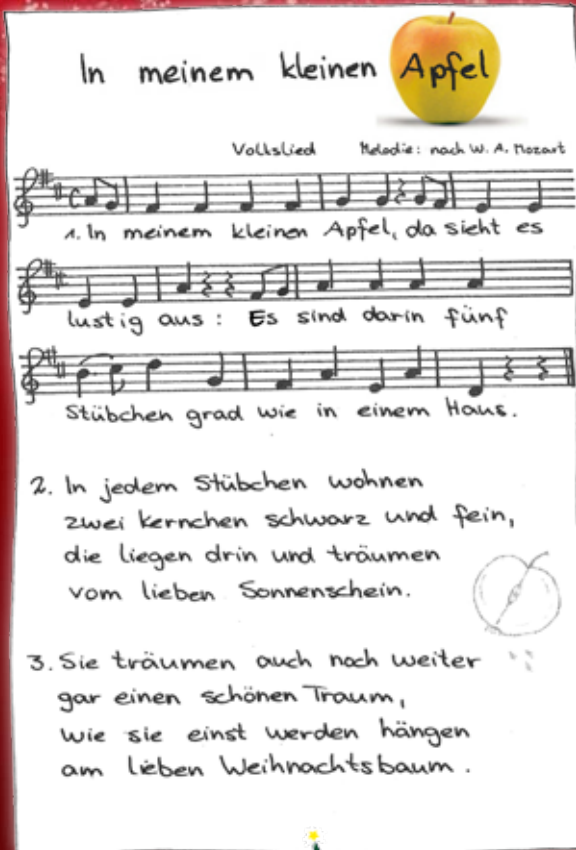 In meinem kleinen Apfel
Volkslied Melodie: nach W. A. Mozart
1. In meinem kleinen Apfel, da sieht es
lustig aus: Es sind darin fünf
Stübchen grad wie in einem Haus.
2. In jedem Stübchen wohnen
zwei Kernchen schwarz und fein,
die liegen drin und träumen
vom lieben Sonnenschein.
3. Sie träumen auch noch weiter
gar einen schönen Traum,
wie sie einst werden hängen
am lieben Weihnachtsbaum.